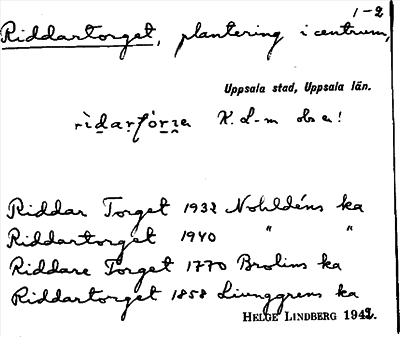 1-2
Riddartorget, plantering i centrum,
Uppsala stad, Uppsala län.
K. L-m obs a!
Riddar Torget 1932 Nohldéns ka
Riddartorget 1940 " "
Riddare Torget 1770 Brolins ka
Riddartorget 1858 Ljunggrens ka
HELGE LINDBERG 1942.